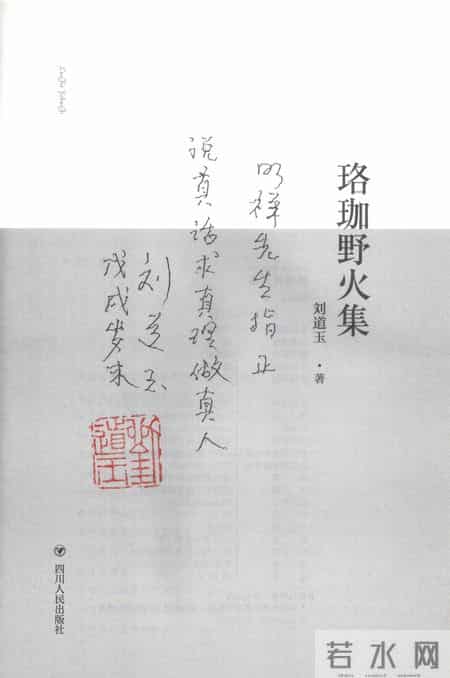 珞珈野火集
刘道玉·著
明祥先生指正
说真话求真理做真人
刘道玉
戊戌岁末
劉道玉
四川人民出版社
若水网